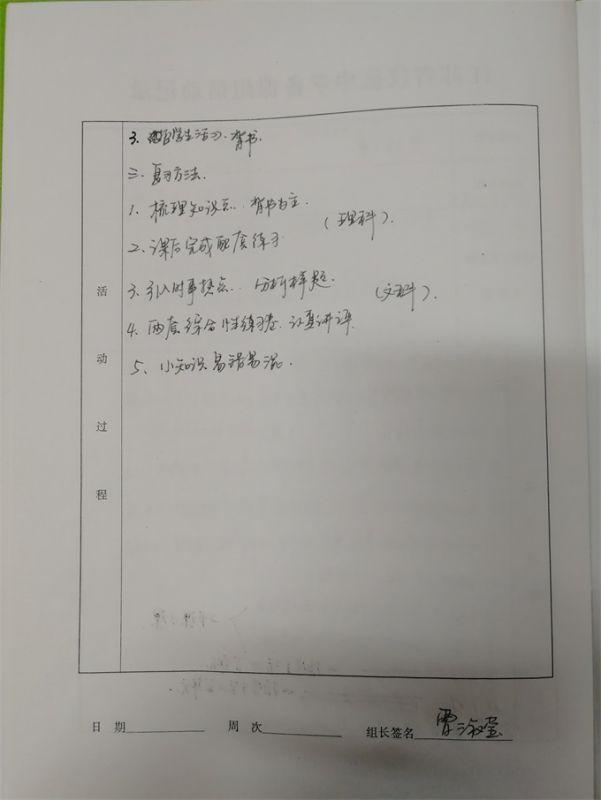 3. 学生活动. 背书.
三. 复习方法.
1. 梳理知识点. 背书为主.
(理科).
2. 课后完成配套练习
3. 引入时事热点. 分析样题.
(文科).
4. 两套综合性练习卷. 认真讲评.
5. 小知识易错易混.
活动过程
日 期 周 次 组长签名